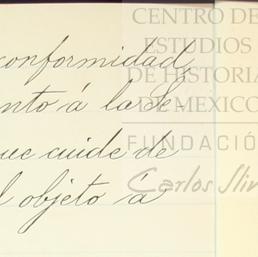 CENTRO DE
ESTUDIOS
DE HISTORIA
DE MEXICO
FUNDACIÓ
Carlos Slim
conformidad
nto á la Se-
ue cuide de
l objeto á